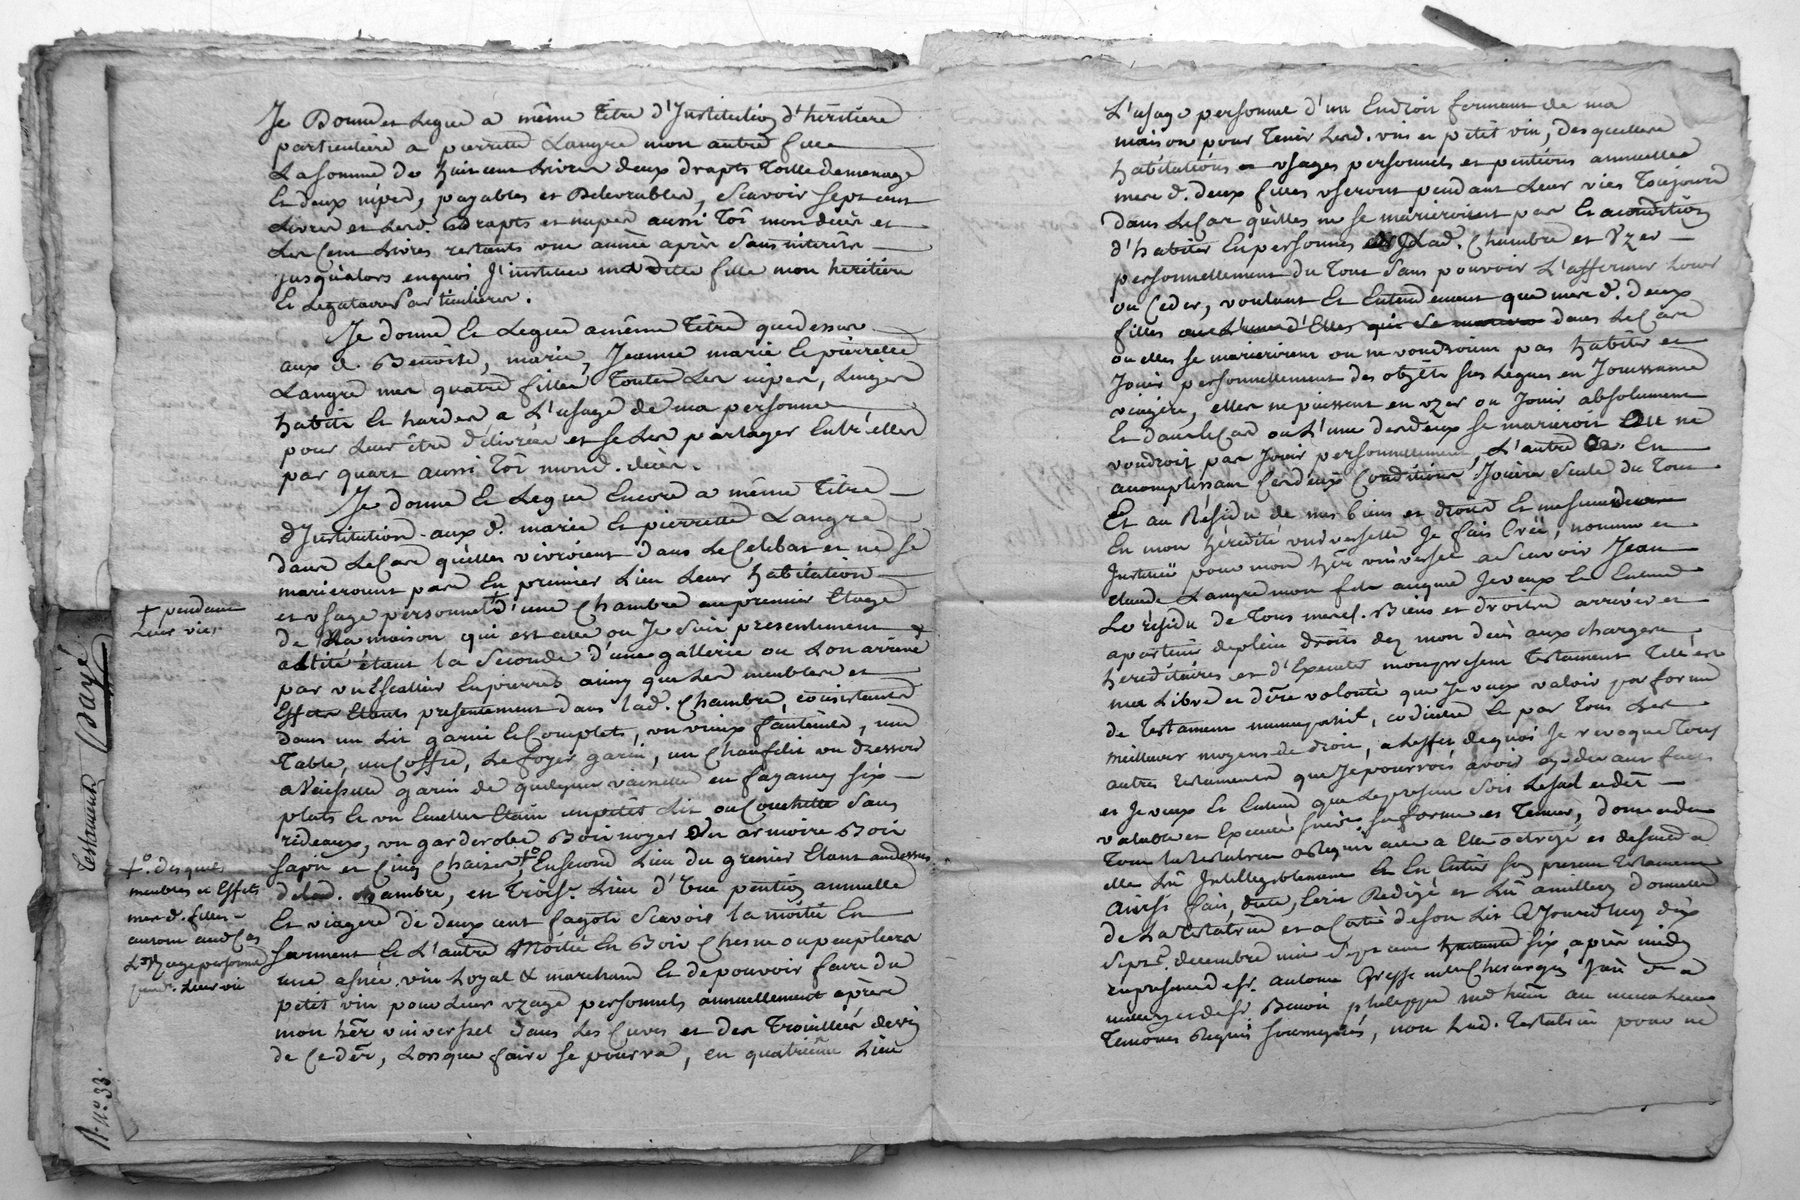 Je Donne et Legue a même titre d'Institution d'héritiere
particuliere a pierrette Langre mon autre fille
La somme de huit cent Livres deux drapts toille de menage
Et deux nipes, payables et Delivrables, scavoir sept cent
Livres et Lesd. drapts et napes aussi tôt mon deces et
Les Cent Livres restants une année après sans interêts
jusqu'alors enquoi J'institue mad. ditte fille mon heritiere
Et Legataire Particuliere.
Je donne Et Legue a même titre que dessus
aux d. Benoite, marie, Jeanne marie Et pierrette
Langre mes quatre filles toutes Les nipes, Linges
habits Et hardes a L'usage de ma personne
pour Leur être délivrées et se Les partager Entr'elles
par quart aussi tôt mond. deces.
Je donne Et Legue Encore a même titre
d'Institution aux d. marie Et pierrette Langre
dans Le Cas qu'elles vivroient dans Le Celibat et ne se
marieroient pas En premier Lieu Leur habitation
et usage personnel + d'une Chambre au premier Etage
de Ma maison qui est celle ou Je suis presentement
alité étant la Seconde d'une gallerie ou Lon arrive
par un Escallier En pierres ainsy que Les meubles et
Effets Etants presentement dans lad. Chambre, consistants
dans un Lit garni Et Complets, un vieux fauteuil, une
Table, un Coffre, Le foyer garni, un Chaufelit un dressoir
a Vaisselle garni de quelque vaisselle en fayance six
plats Et un Cuillier Etain un petit Lit ou Couchette sans
rideaux, un garderobe Bois noyer Une armoire Bois
sapin et Cinq Chaises +o, En second Lieu du grenier Etant audessus
de lad. Chambre, en Trois. Lieu d'Une pention annuelle
Et viagere de deux cent fagots Scavoir la moitié En
sarment Et L'autre Moitié En Bois Chesne ou peupliers
une asnée vin Loyal & marchand Et de pouvoir faire du
petit vin pour Leur uzage personnels annuellement après
mon hér. universsel dans Les Cuves et des Trouilles de vin
de Ce dér., Lorsque faire se pourra, en quatrieme Lieu
+ pendant
Leur vie.
+o. desquels
meubles et Effets
mesd. filles
auront aud. Cas
L'uzage personnel
pend. Leur vie
Testament Payé
N. no 33.
L'usage personnel d'un Endroit fermant de ma
maison pour tenir Lesd. vin et petit vin, desquelles
habitations usages personnels et pentions annuelles
mesd. deux filles useront pendant Leur vies Toujours
dans Le Cas qu'elles ne se marieroient pas Et a condition
d'habiter En personnes Lad. Chambre et Uzer
personnellement du Tout sans pouvoir L'affermer Louer
ou Ceder, voulant Et Entendement que mesd. deux
filles ou L'une d'Elles qui se mariera dans Le Cas
ou elles se marieroient ou ne voudroient pas habiter et
Jouir personnellement des objets sus Legues en Jouissance
viagere, elles ne puissent en uzer ou Jouir absolument
Et dans Le Cas ou L'une des deux se marieroit Ou ne
voudroit pas Jouir personnellement, L'autre En
accomplissant Ces deux Conditions Jouira Seule du Tout
Et au Résidu de mes biens et droits Et
En mon hérédité universelle Je fais Créé, nomme et
Institué pour mon hér. universel a Scavoir Jean
Claude Langre mon fils auquel Je veux Et Entend
Le résidu de Tous mesd. Biens et droits arriver et
apartenir de plein droit dez mon deces aux charges
héréditaires et d'Executer mon present Testament Tel est
ma Libre et dre volonté que Je veux valoir par forme
de Testament nuncupatif, codicille Et par Tous Les
meilleurs moyens de droit, a Leffet dequoi Je revoque Tous
autres testaments que Je pourrois avoir cy devant faits
et Je veux Et Entend que Le present Soit Le seul
valable et Executé suivant sa forme et Teneur, demandant
Tout La testatrice a Elle octroyé et
elle Lû Intelligiblement Et En Entier Son present testament
Ainsi fait, dicté, Ecrit Redigé et Lû au milieu domicille
de La testatrice et a Coté de son Lit Aujourdhuy dix
Sept. decembre mil Sept cent huitante six, après midy
en presence de sr. antoine Gresse me Chirurgien
et de sr. Benoit philippe
Temoins Requis soussignés, non Lad. testatrice pour ne